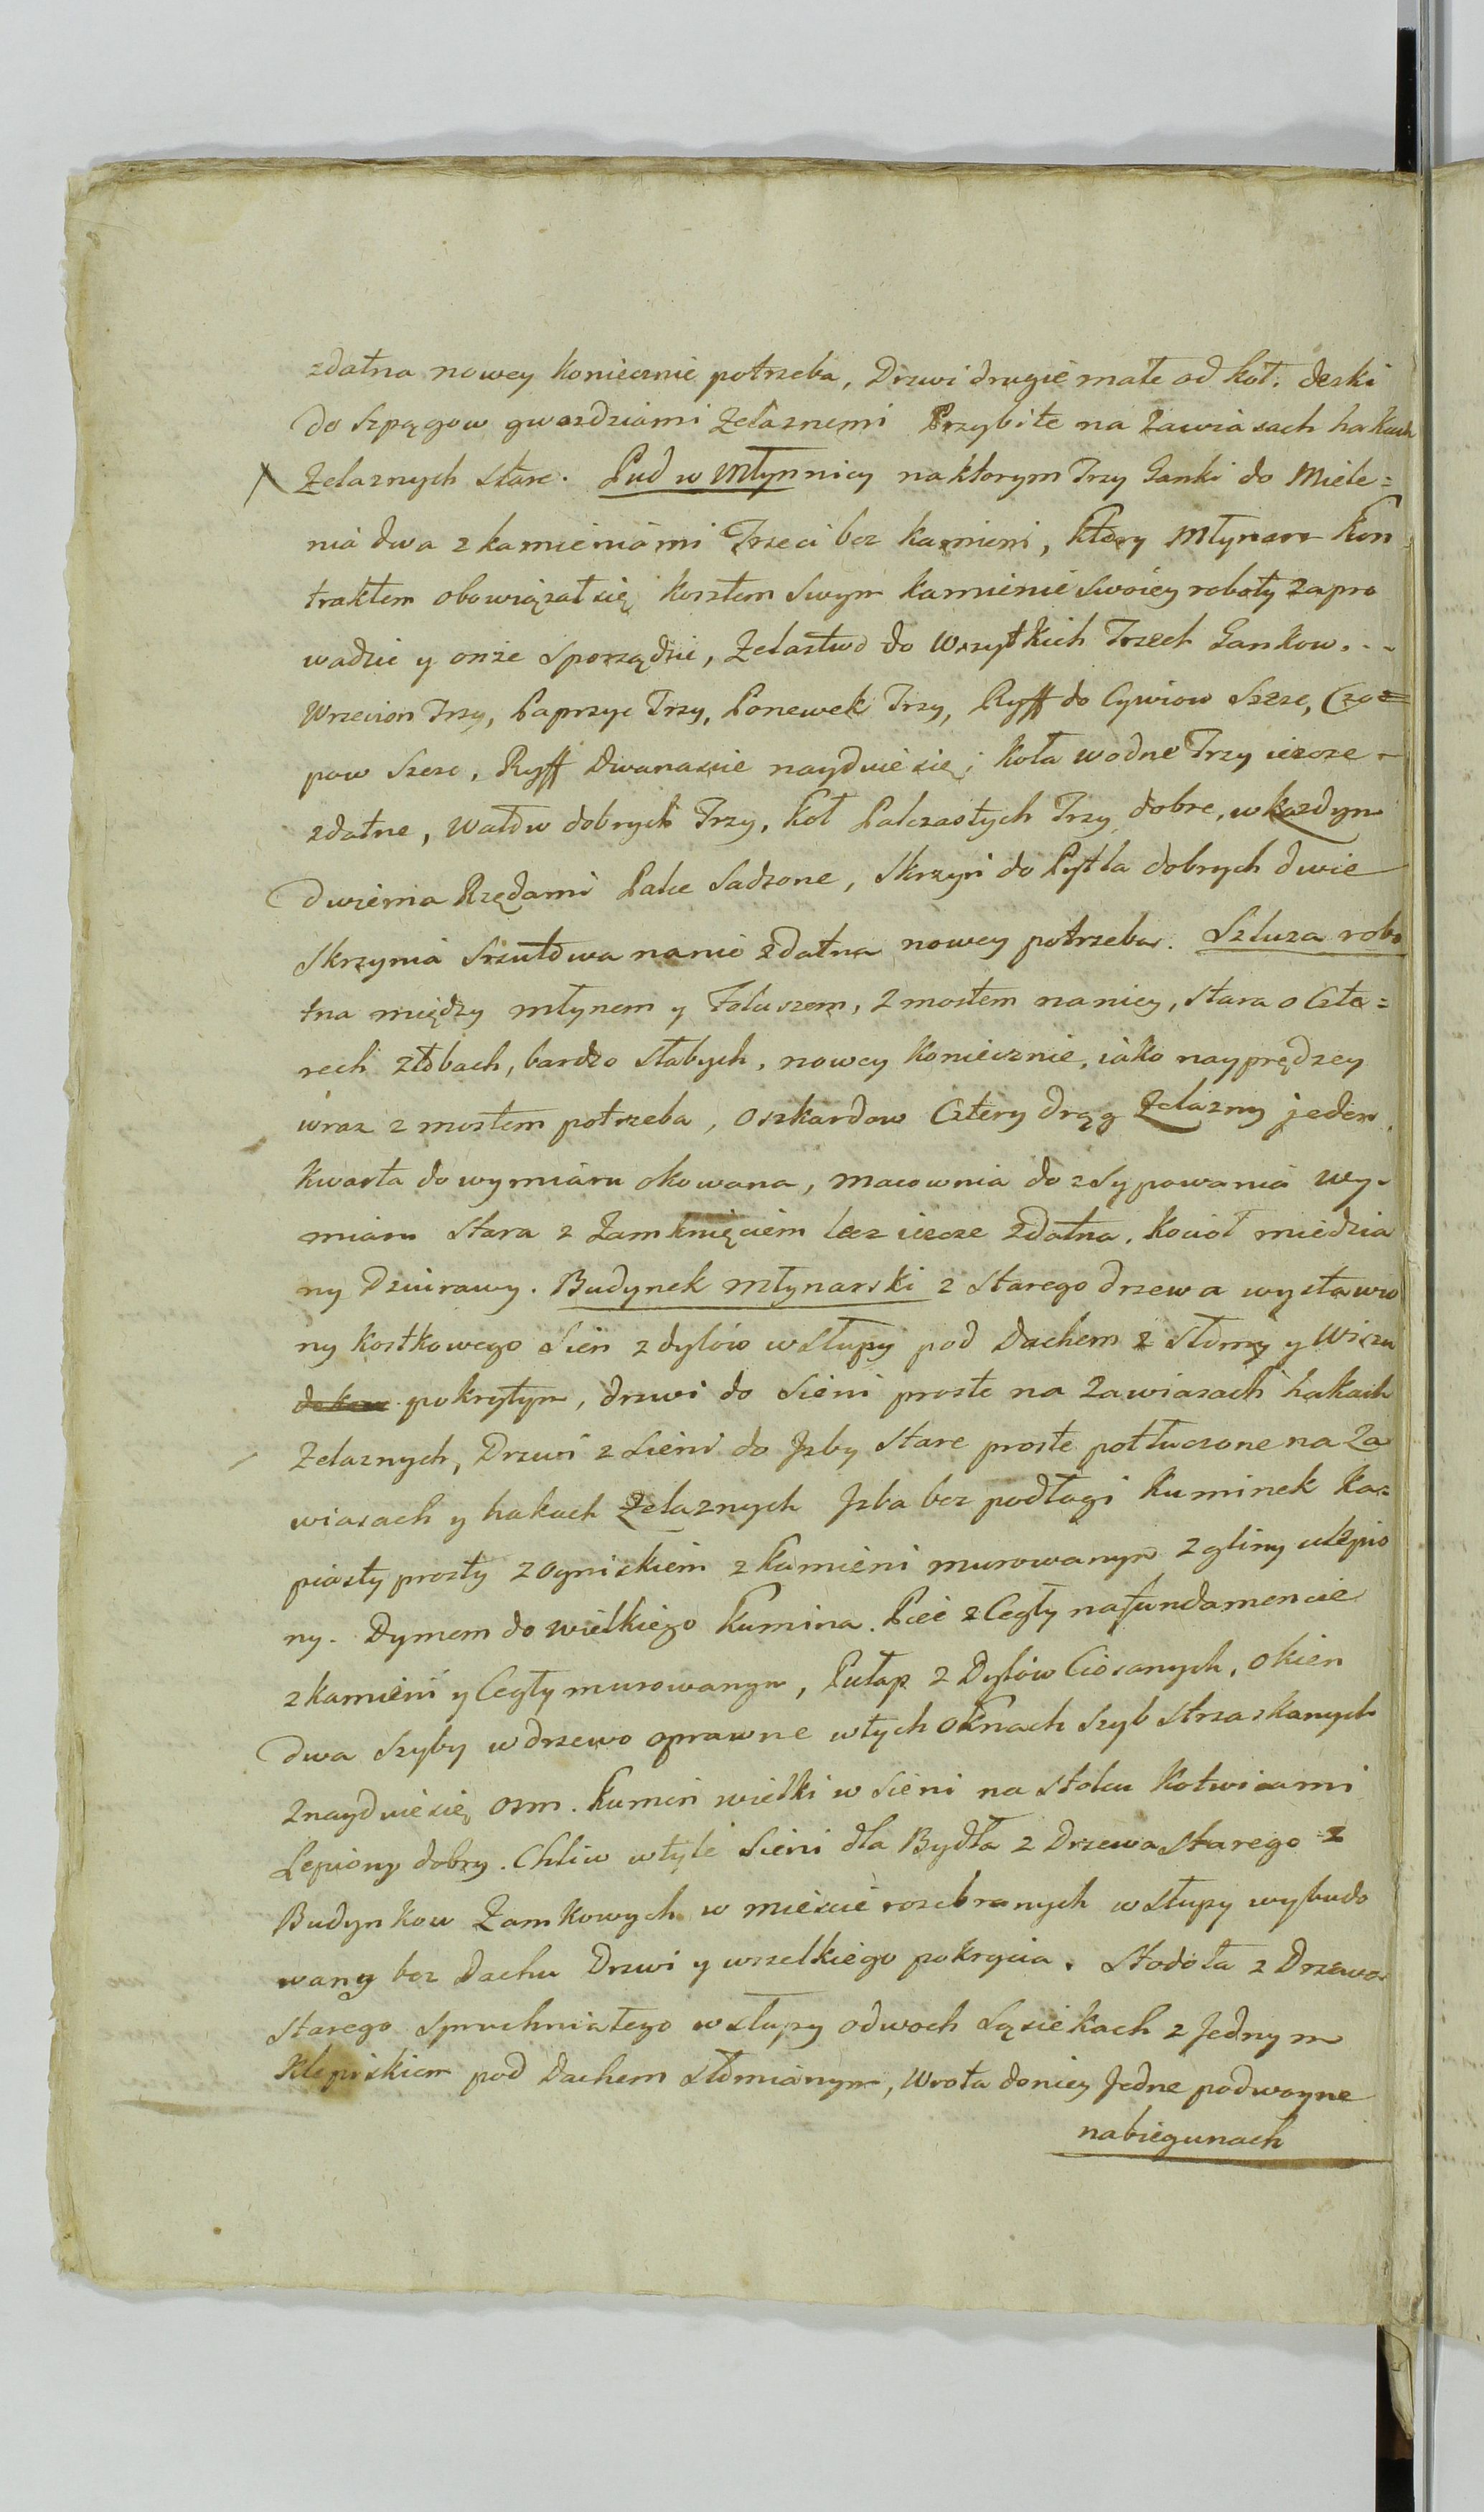 zdatna nowey koniecznie potrzeba, Drzwi drugie małe od koł. deski
do szpągow gwozdziami żelaznemi Przybite na zawiasach hakach
żelaznych stare. Pud w Młynnicy na ktorym Trzy Ganki do Miele=
nia dwa z kamieniami Trzeci bez kamieni, ktory Młynarz kon
traktem obowiązał się kosztem swym kamienie swoiey roboty zapro
wadzic y onże sporządzic, żelastwo do wszytkich Trzech Gankow. . -
Wrzecion Trzy, Paprzyc Trzy, Panewek Trzy, Ryff do Cywiow szesc, Czo=
pow szesc, Ryff Dwanascie nayduie się; koła wodne Trzy ieszcze
zdatne, wałow dobrych Trzy, koł Palczastych Trzy dobre, w kazdym
dwiema Rzędami Palce sadzone, skrzyń do Pytla dobrych dwie
skrzynia srzutowa nanic zdatna nowey potrzeba. Szluza robo
tna między młynem y Foluszem, z mostem naniey, stara o Czte=
rech żłobach, bardzo słabych, nowey koniecznie, iako nayprędzey
wraz z mostem potrzeba, Oszkardow Cztery drąg żelazny jeden,
kwarta do wymiaru okowana, macownia do zsypowania wy-
miaru stara z zamknięciem lecz ieszcze zdatna, kocioł miedzia
ny Dziurawy. Budynek Młynarski z starego drzewa wystawio
ny kostkowego sień z dylów w słupy pod Dachem z słomy y Wiszu
pokrytym, drzwi do sieni proste na zawiasach hakach
żelaznych, Drzwi z sieni do Jzby stare proste potłuczone na za
wiasach y hakach żelaznych Jzba bez podłogi kuminek ka=
piasty prosty z ogniskiem z kamieni murowanym z gliny ulepio
ny. Dymem do wielkiego kumina. Piec z Cegły nafundamencie
z kamieni y Cegły murowanym, Pułap z Dylów Ciosanych, okien
dwa szyby w drzewo oprawne w tych oknach szyb strzaskanych
znayduie się osm. kumin wielki w sieni na stolcu kotwicami
Lepiony dobry. Chliw w tyle sieni dla Bydła z Drzewa starego z
Budynkow Zamkowych w miescie rozebranych w słupy wybudo
wany bez Dachu Drzwi y wszelkiego pokrycia. Stodoła z Drzewa
starego spruchniałego w słupy odwoch sąsiekach z Jednym
klepiskiem pod Dachem słomianym, wrota doniey Jedne podwoyne
nabiegunach